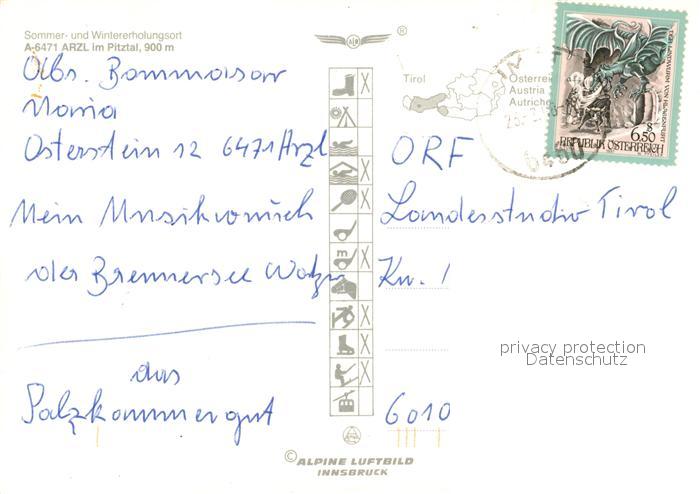 Sommer- und Wintererholungsort
A-6471 ARZL im Pitztal, 900 m
Maria
Osterstein 12 6471 Arzl
Mein Musikwunsch
der Brennersee
das
Salzkammergut
®
Tirol
Österreich
Austria
Autriche
6460
DER LINDWURM VON
S
6.50
REPUBLIK ÖSTERREICH
ORF
Landesstudio Tirol
Kw. 1
6010
privacy protection
Datenschutz
m
© ALPINE LUFTBILD
INNSBRUCK